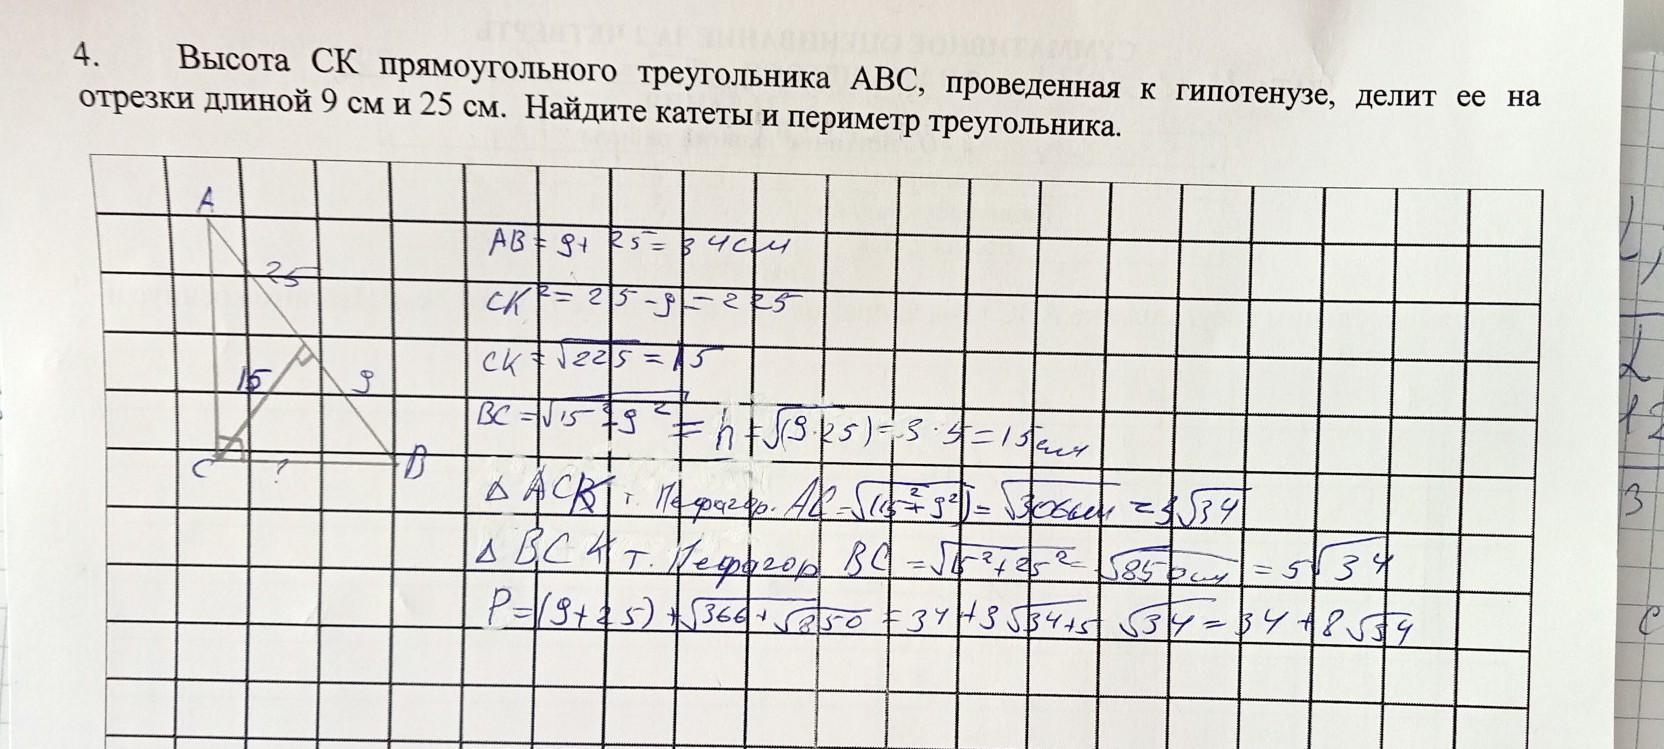 4. Высота СК прямоугольного треугольника АВС, проведенная к гипотенузе, делит ее на
отрезки длиной 9 см и 25 см. Найдите катеты и периметр треугольника.
A
25
15
9
C
?
B
AB = 9 + 25 = 34 см
CK² = 25 - 9 = 225
CK = √225 = 15
BC = √15² + 9² = h = √(9·25) = 3·5 = 15 см
△ ACK т. Пефагор. AC = √(15² + 9²) = √306 см = 3√34
△ BCK т. Пефагор BC = √15² + 25² = √850 см = 5√34
P = (9 + 25) + √366 + √850 = 34 + 3√34 + 5√34 = 34 + 8√34